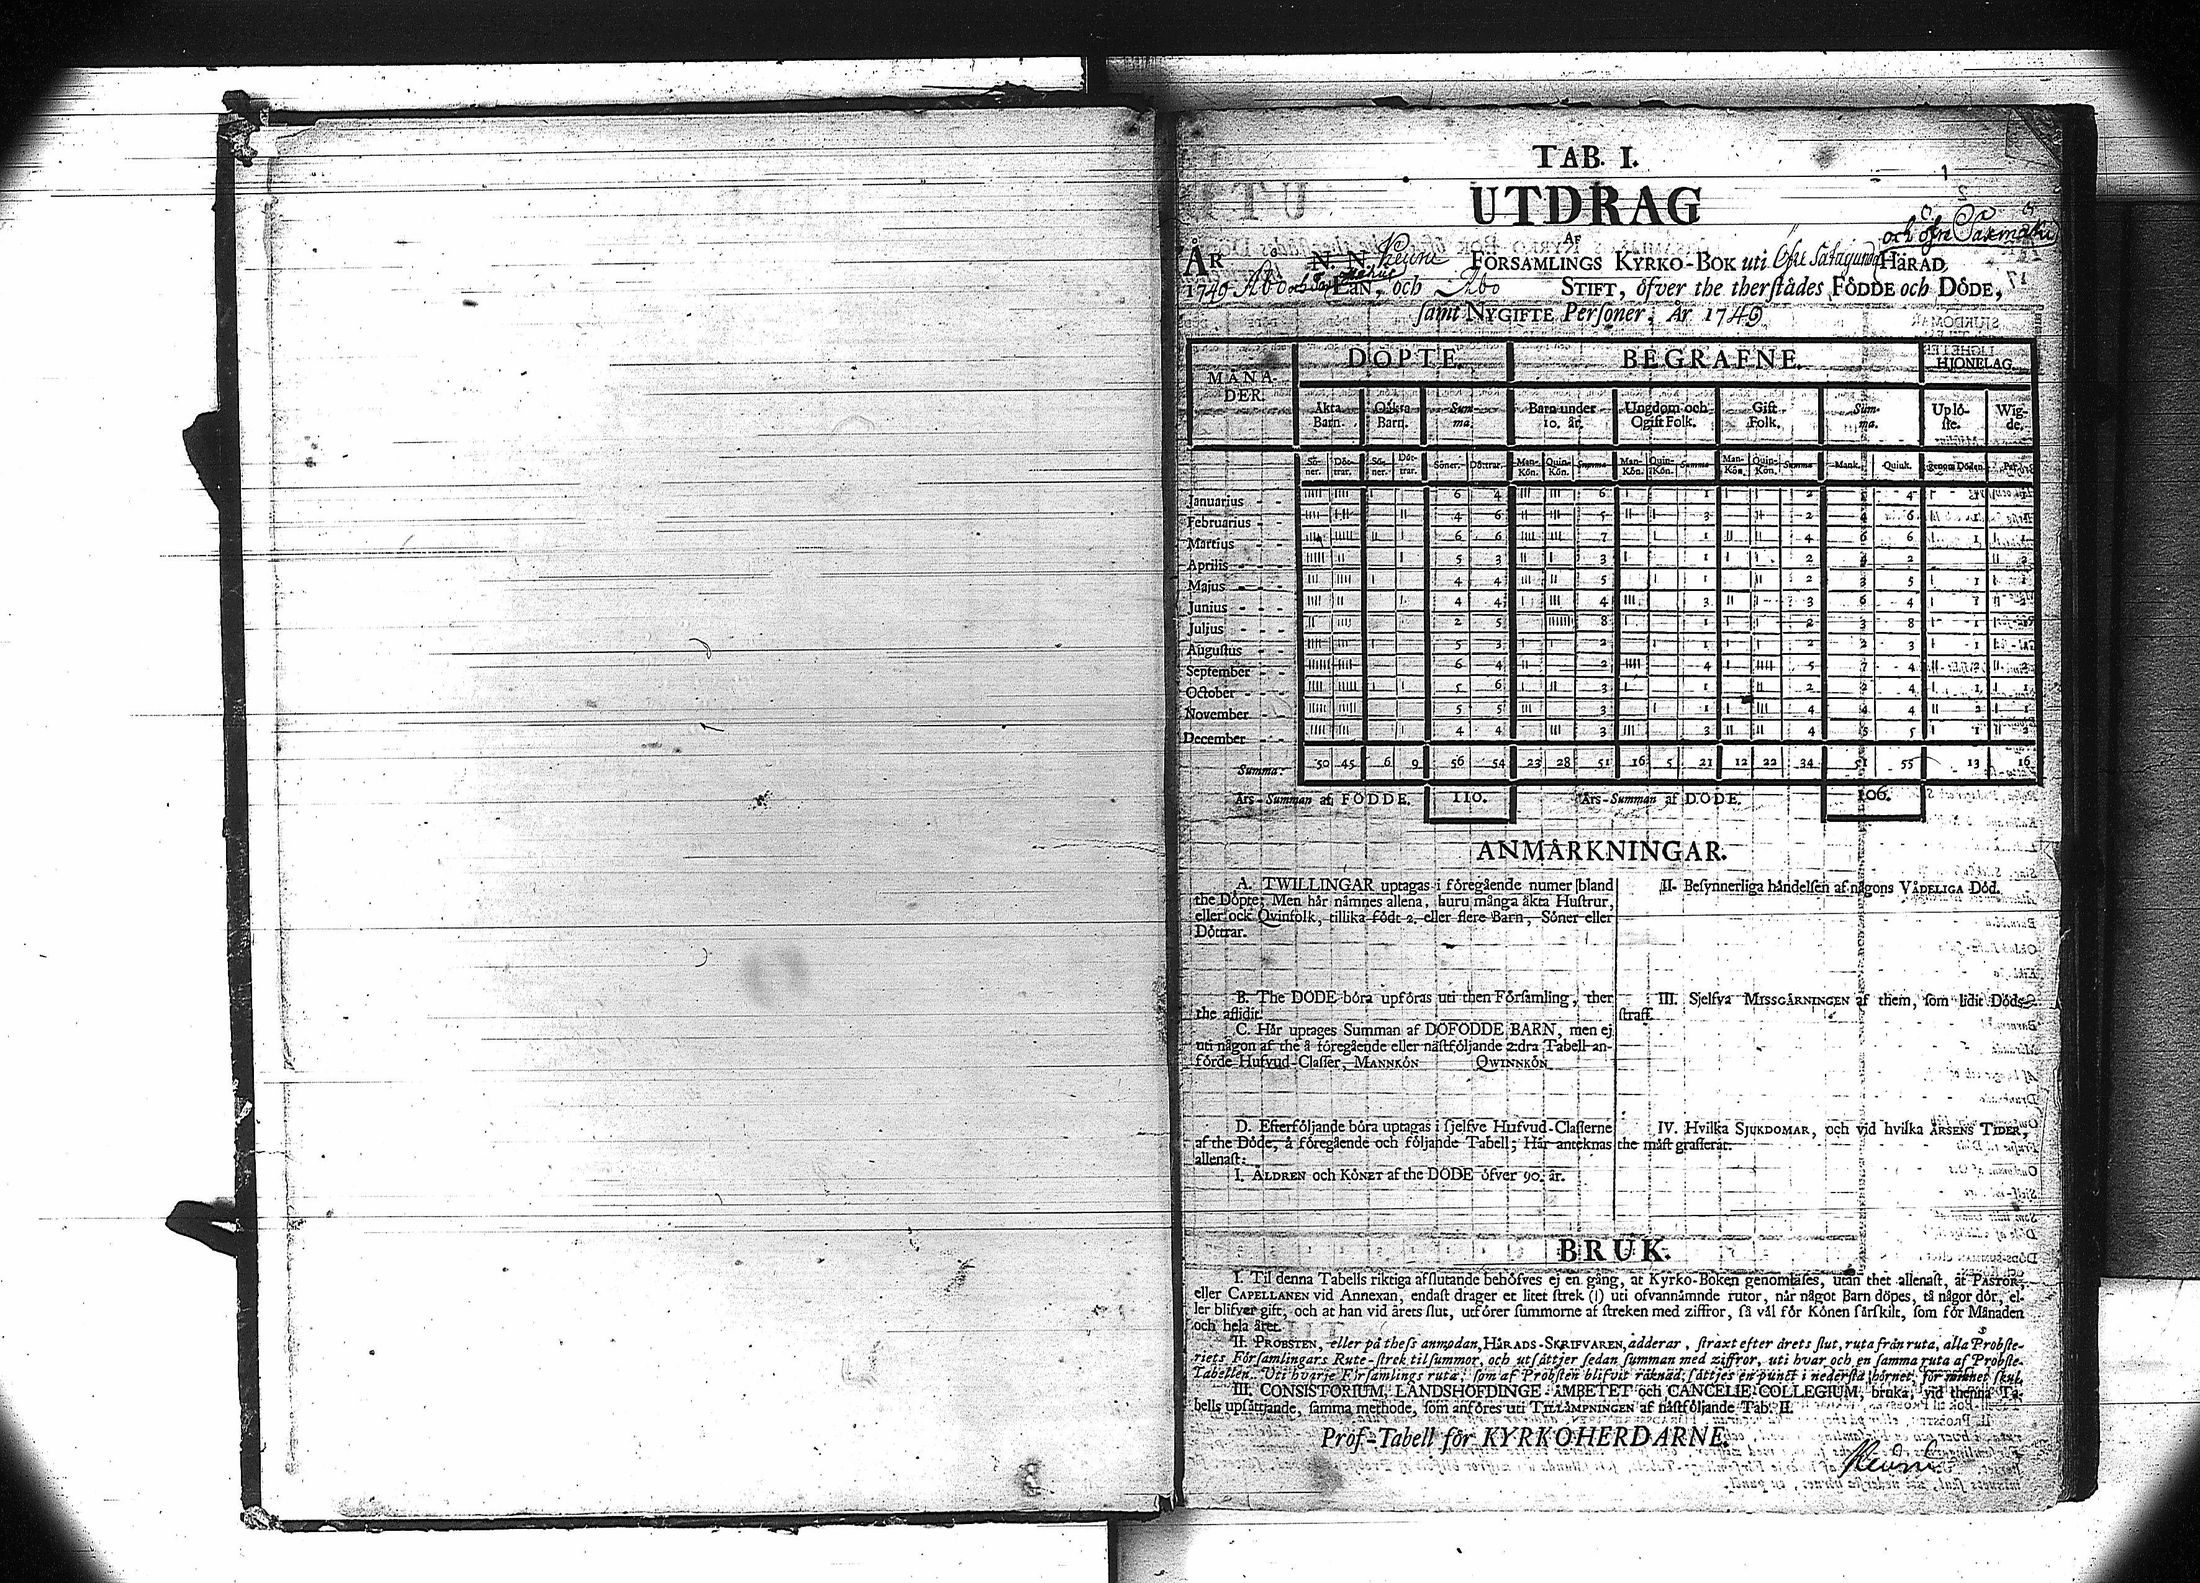 1
TAB. I.
UTDRAG
AF
och öfre
ÅR N. N. FÖRSAMLINGS KYRKO-BOK uti Öfre Satagunda HÄRAD,
1749 Åbo LÄN, och Åbo STIFT, öfver the therstädes FÖDDE och DÖDE,
samt NYGIFTE Personer, År 1749
MÅNADER. DÖPTE. BEGRAFNE. HJONELAG.
Äkta Barn. Oäkta Barn. Summa. Barn under 10. år. Ungdom och Ogift Folk. Gift Folk. Summa. Uplöste. Wigde.
Söner. Döttrar. Söner. Döttrar. Söner. Döttrar. Mankön. Quinkön. Summa Mankön. Quinkön. Summa Mankön. Quinkön. Summa Mank. Quink. genom Döden Par
Januarius - - 6 4 6 1 2 4
Februarius - - 4 6 5 3 2 4 6 1
Martius 6 6 7 1 4 6 6 1 1
Aprilis - - - 5 3 3 1 2 2
Majus - - - 4 4 5 1 2 3 5 1 1
Junius - - - 4 4 4 3 3 6 4 1 2
Juljus - - - 2 5 8 2 3 8 1
Augustus - - 5 3 2 1 1 2 3 1
September - - 6 4 2 4 5 7 4
October - - 5 6 3 1 2 2 4 1 1
November - - 5 5 3 1 4 4 4 2 1
December - - 4 4 3 3 4 5 5 1 2
Summa: 50 45 6 9 56 54 23 28 51 16 5 21 12 22 34 51 55 13 16
Års-Summan af FÖDDE. 110. Års-Summan af DÖDE. 106.
ANMÄRKNINGAR.
A. TWILLINGAR uptagas i föregående numer ibland
the Döpte; Men här nämnes allena, huru många äkta Hustrur,
eller ock Qvinfolk, tillika födt 2. eller flere Barn, Söner eller
Döttrar.
B. The DÖDE böra upföras uti then Församling, ther
the aflidit.
C. Här uptages Summan af DÖFÖDDE BARN, men ej
uti någon af the å föregående eller nästföljande 2:dra Tabell an-
förde Hufvud-Classer, MANNKÖN QWINNKÖN
D. Efterföljande böra uptagas i sjelfve Hufvud-Classerne
af the Döde, å föregående och följande Tabell; Här anteknas
allenast:
I. ÅLDREN och KÖNET af the DÖDE öfver 90. år.
II. Besynnerliga händelsen af någons VÅDELIGA Död.
III. Sjelfva MISSGÄRNINGEN af them, som lidit Döds-
straff.
IV. Hvilka SJUKDOMAR, och vid hvilka ÅRSENS TIDER,
the mäst grasserat.
BRUK.
I. Til denna Tabells riktiga afslutande behöfves ej en gång, at Kyrko-Boken genomläses, utan thet allenast, at PASTOR,
eller CAPELLANEN vid Annexan, endast drager et litet strek (|) uti ofvannämnde rutor, när något Barn döpes, tå någor dör, el-
ler blifver gift, och at han vid årets slut, utförer summorne af streken med ziffror, så väl för Könen särskilt, som för Månaden
och hela året.
II. PROBSTEN, eller på thess anmodan, HÄRADS-SKRIFVAREN, adderar, straxt efter årets slut, ruta från ruta, alla Probste-
riets Församlingars Rute-strek til summor, och utsättjer sedan summan med ziffror, uti hvar och en samma ruta af Probste-
Tabellen. Uti hvarje Församlings ruta, som af Probsten blifvit räknad, sättjes en punct i nedersta hörnet, för minnet skul.
III. CONSISTORIUM, LANDSHÖFDINGE-ÄMBETET och CANCELIE-COLLEGIUM, bruka, vid thenna Ta-
bells upsättjande, samma methode, som anföres uti TILLÄMPNINGEN af nästföljande Tab. II.
Prof-Tabell för KYRKOHERDARNE.